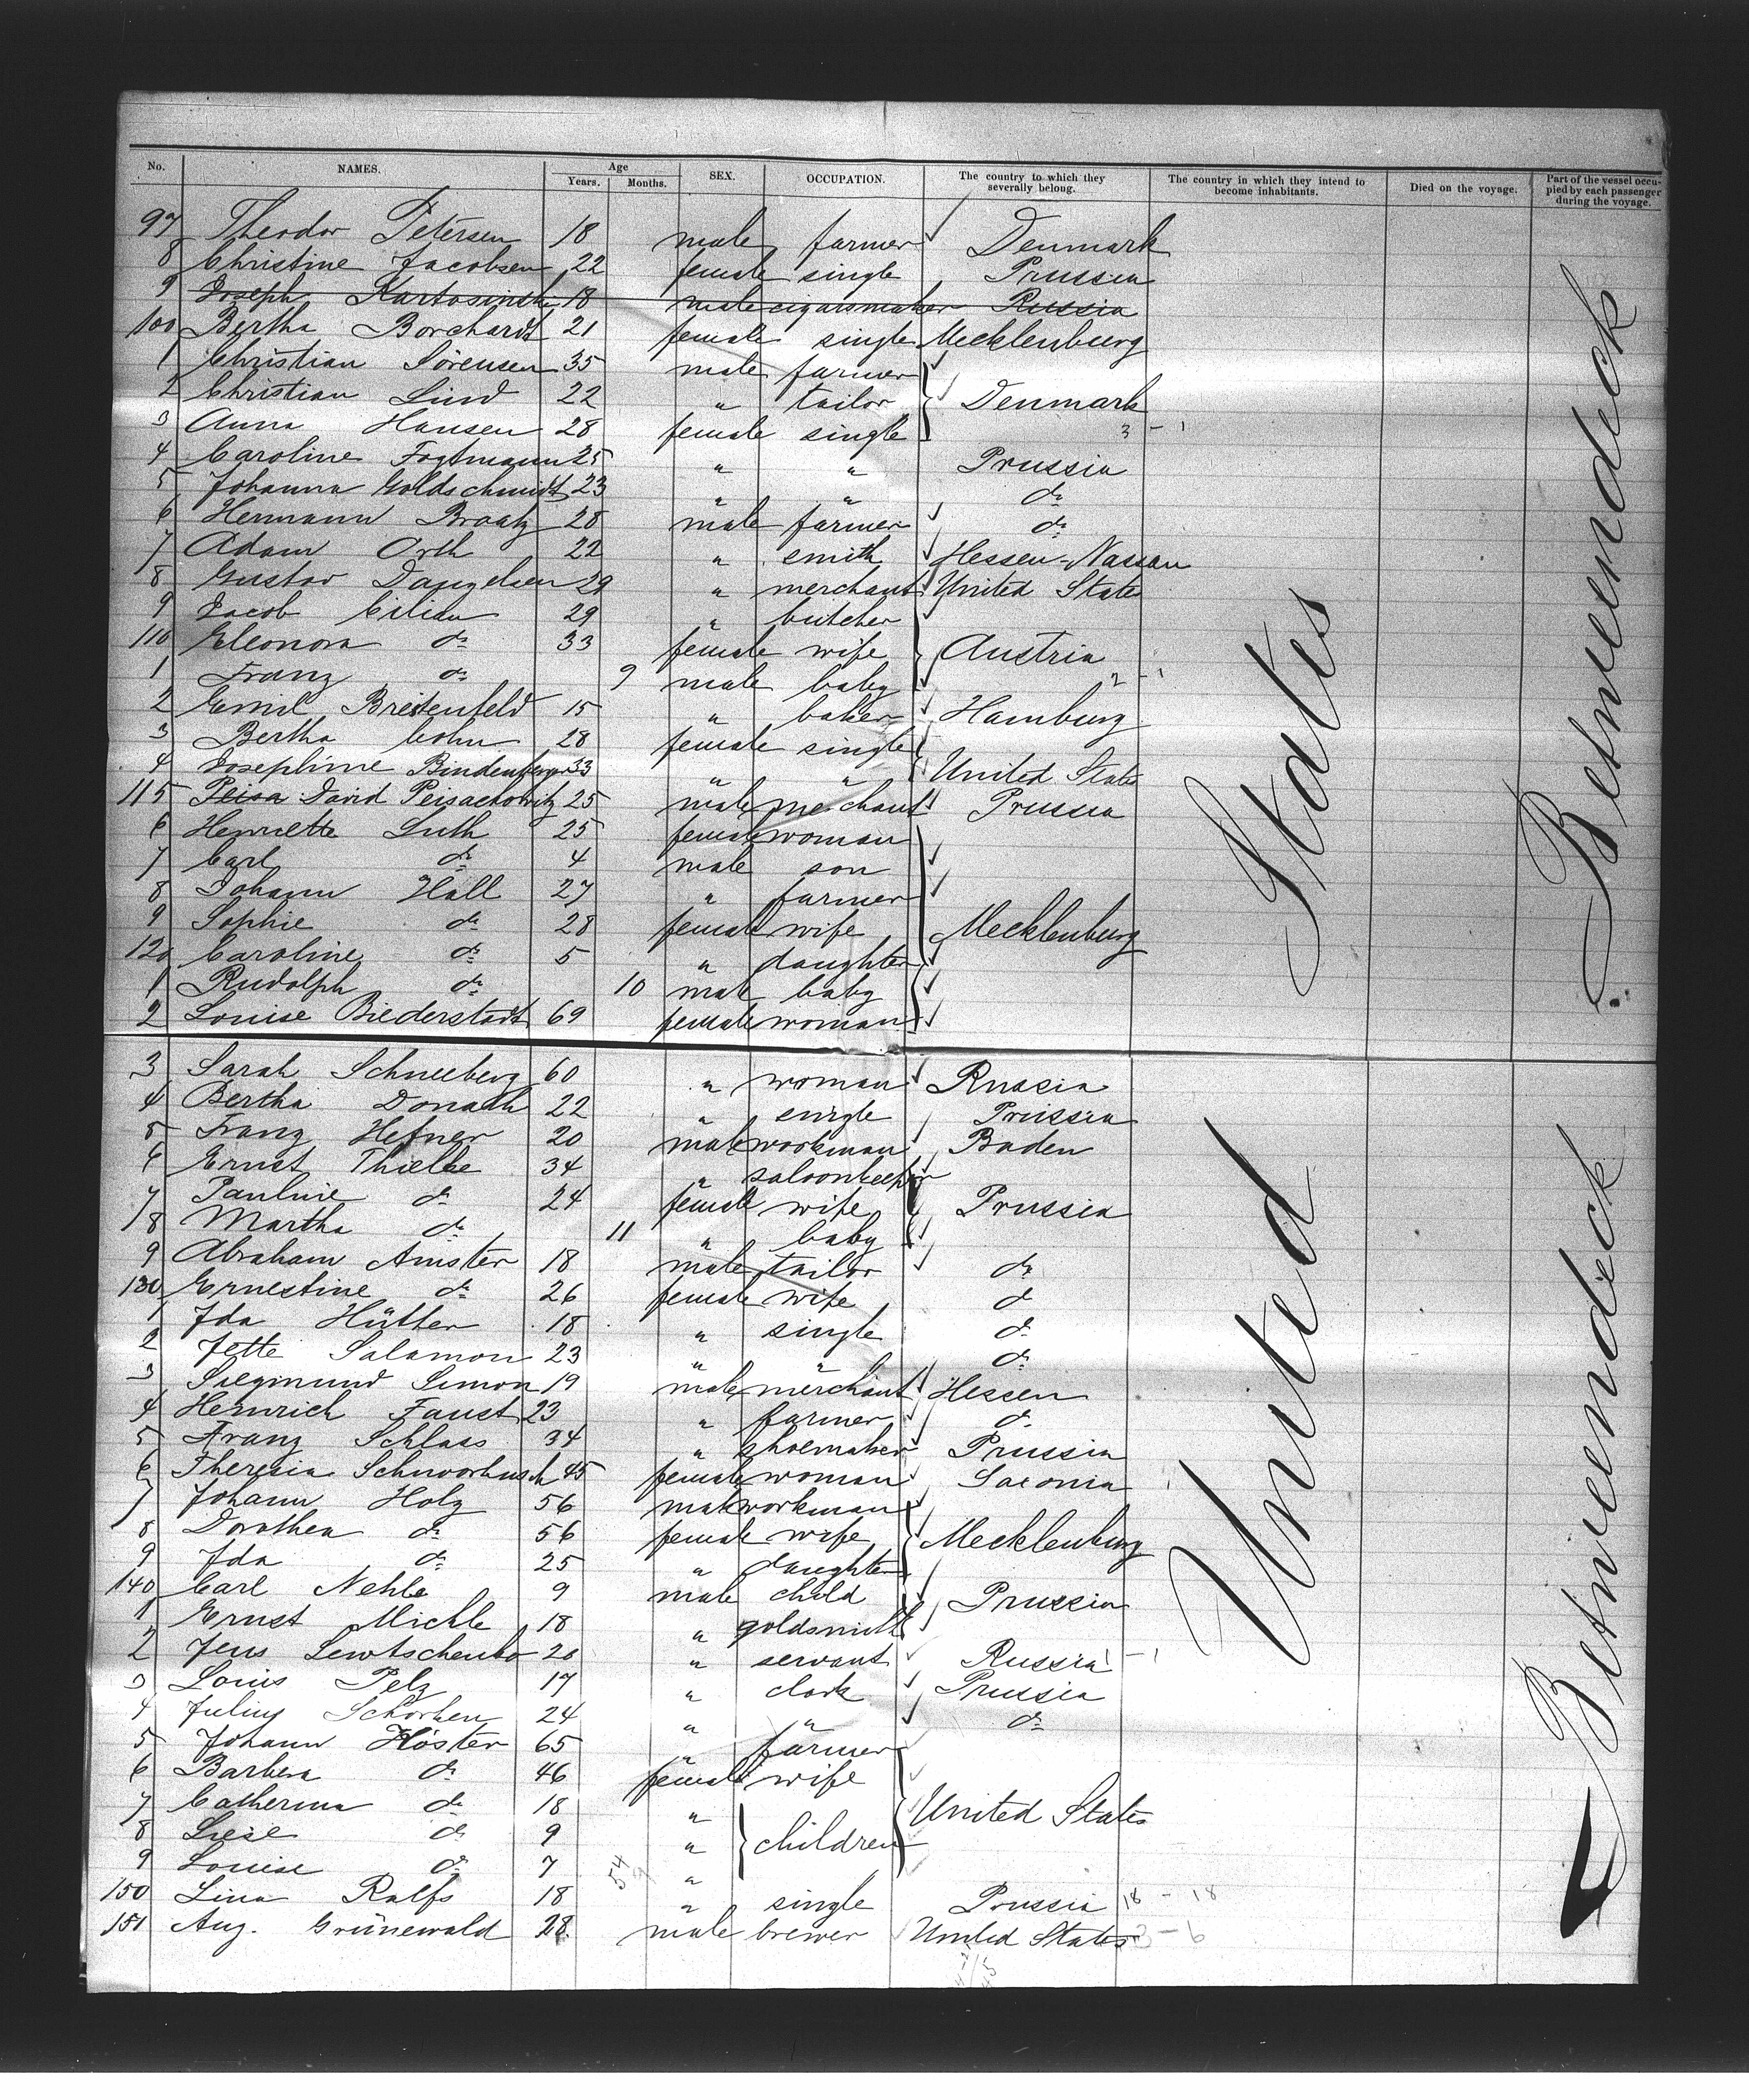 No. NAMES. Age Years. Months. SEX. OCCUPATION. The country to which they severally belong. The country in which they intend to become inhabitants. Died on the voyage. Part of the vessel occupied by each passenger during the voyage.
97 Theodor Petersen 18 male farmer Denmark
8 Christine Jacobsen 22 female single Prussia
9 Joseph 18 male cigarsmaker Russia
100 Bertha Borchardt 21 female single Mecklenburg
1 Christian Sörensen 35 male farmer
2 Christian Lind 22 " tailor Denmark
3 Anna Hansen 28 female single 3 - 1
4 Caroline Fogtmann 25 " " Prussia
5 Johanna Goldschmidt 23 " " do
6 Hermann Braatz 28 male farmer do
7 Adam Orth 22 " smith Hessen-Nassau
8 Gustav Daugelsen 29 " merchant United States
9 Jacob Cilian 29 " butcher
110 Eleonora do 33 female wife Austria
1 Franz do 9 male baby 2 - 1
2 Emil Breitenfeld 15 " baker Hamburg
3 Bertha Cohn 28 female single
4 Josephine Bindenberger 33 " " United States
115 Peisa David Peisachowitz 25 male merchant Prussia
6 Henriette Luth 25 female woman
7 Carl do 4 male son
8 Johann Hall 27 " farmer
9 Sophie do 28 female wife Mecklenburg
120 Caroline do 5 " daughter
1 Rudolph do 10 male baby
2 Louise Biederstadt 69 female woman
3 Sarah Schneeberg 60 " woman Russia
4 Bertha Donath 22 " single Prussia
5 Franz Hefner 20 male workman Baden
6 Ernst Thielke 34 " saloonkeeper
7 Pauline do 24 female wife Prussia
8 Martha do 11 " baby
9 Abraham Amster 18 male tailor do
130 Ernestine do 26 female wife do
1 Ida Hütter 18 " single do
2 Jette Salamon 23 " " do
3 Siegmund Simon 19 male merchant Hessen
4 Heinrich Faust 23 " farmer do
5 Franz Schlaas 34 " shoemaker Prussia
6 Theresia 45 female woman Saxonia
7 Johann Holz 56 male workman
8 Dorothea do 56 female wife Mecklenburg
9 Ida do 25 " daughter
140 Carl Nehls 9 male child Prussia
1 Ernst Michle 18 " goldsmith
2 Jens Lewtschenko 20 " servant Russia 1 - 1
3 Louis Pelz 17 " clerk Prussia
4 Julius Schorken 24 " " do
5 Johann Köster 65 " farmer
6 Barbera do 46 female wife
7 Catherina do 18 " United States
8 Liese do 9 " children
9 Louise do 7 "
150 Lina Ralfs 18 " single Prussia 18 - 18
151 Aug. Grünewald 28 male brewer United States 3 - 6
United States
Betweendeck
Betweendeck